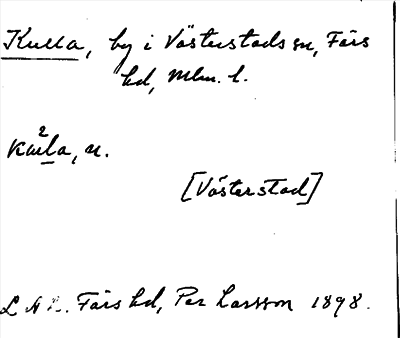 Kulla, by i Västerstads sn, Färs
hd, Mlm. l.
kula, n.
2
[Västerstad]
L A L. Färs hd, Per Larsson 1898.